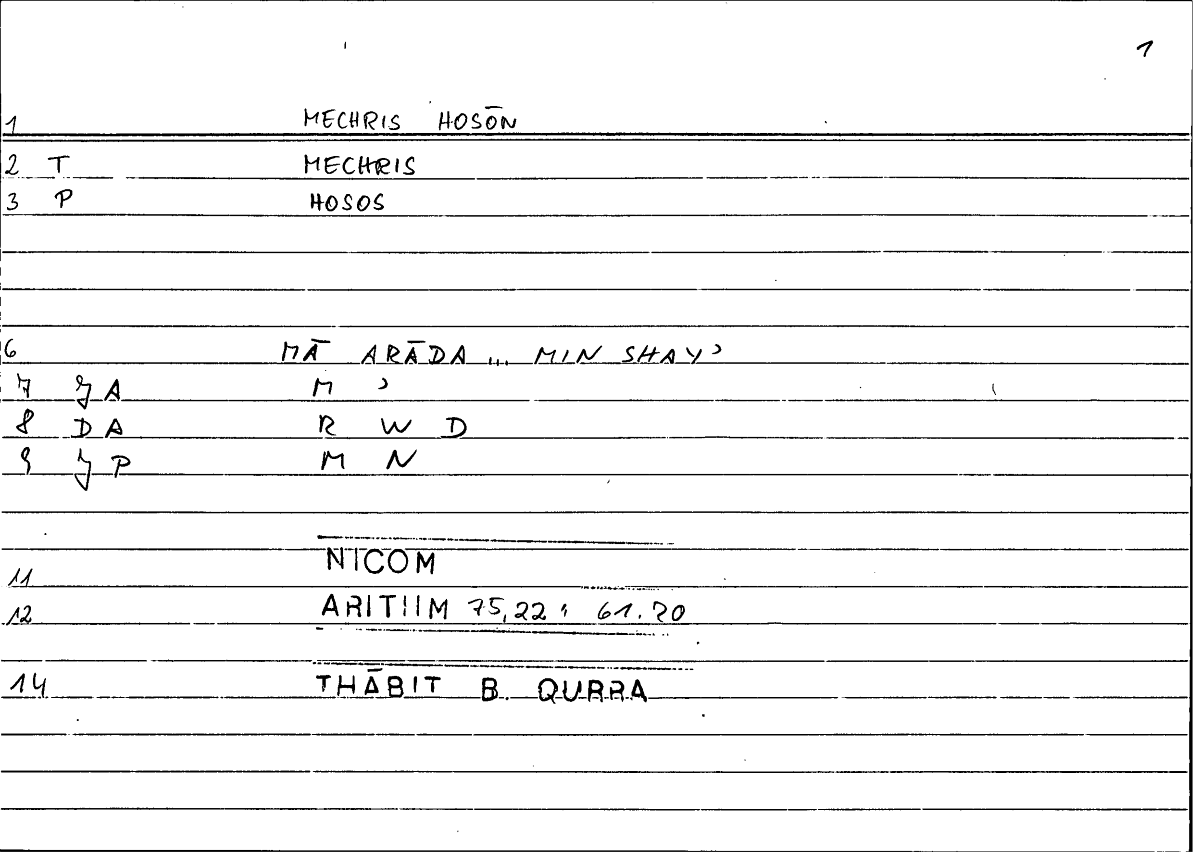 1
1 MECHRIS HOSŌN
2 T MECHRIS
3 P HOSOS
6 MĀ ARĀDA ... MIN SHAYʾ
7 ȜA M ʾ
8 DA R W D
9 ȜP M N
11 NICOM
12 ARITHM 75,22 : 61.20
14 THĀBIT B. QURRA